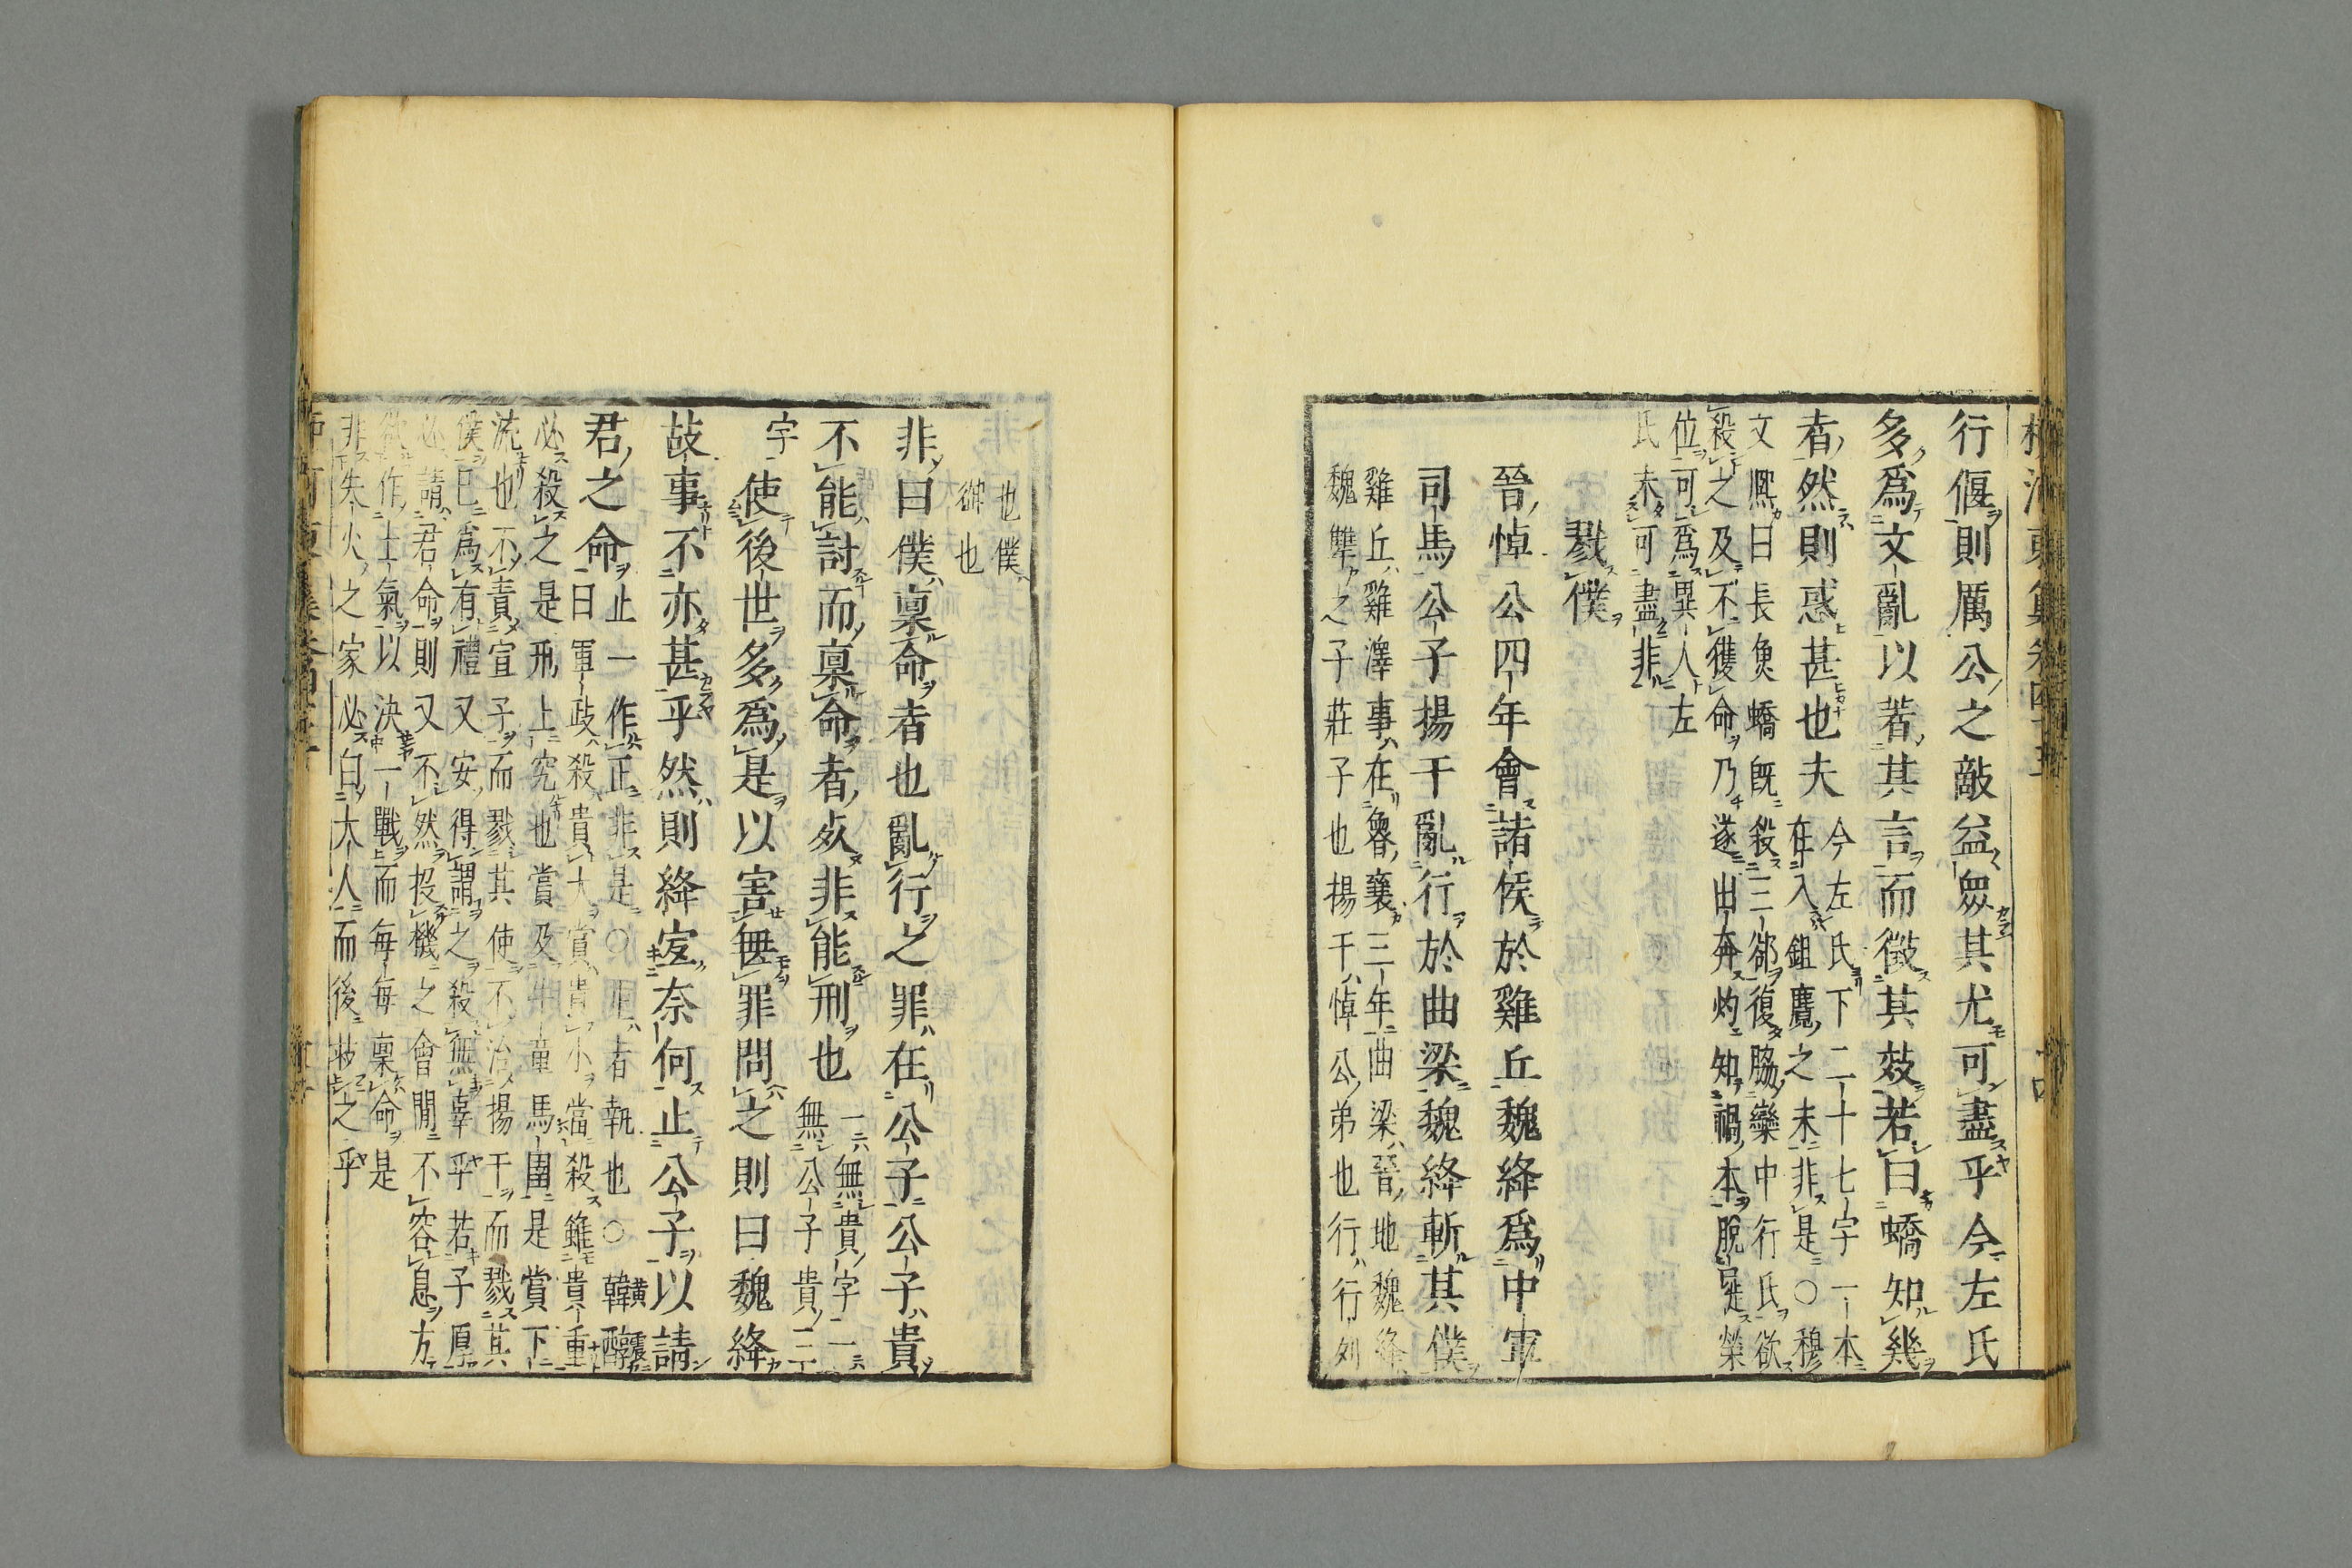 行偃則厲公之敵益衆其尤可盡乎今左氏
多爲文亂以若其言而徵其效若曰蟜知幾
者然則惑甚也夫
今左氏下二十七字一本
在入鉏麑之末非是○穆
文熈曰長魚蟜既殺三郤復脇欒中行氏欲
殺之及不獲命乃遂出奔灼知禍本脫屣榮
位可爲異人左
氏未可盡非
戮僕
晉悼公四年會諸侯於雞丘魏絳爲中軍
司馬公子揚干亂行於曲梁魏絳斬其僕
雞丘雞澤事在魯襄三年曲梁晉地魏絳
魏犨之子莊子也揚干悼公弟也行行列
也僕
御也
非曰僕稟命者也亂行之罪在公子公子貴
不能討而稟命者死非能刑也
一無貴字一
無公子貴三
字
使後世多爲是以害無罪問之則曰魏絳
故事不亦甚乎然則絳宜奈何止公子以請
君之命
止一作正非是○止者執也○韓醇
曰軍政殺貴大賞貴小當殺雖貴重
必殺之是刑上究也賞及牛童馬圉是賞下
流也不責宜子而戮其使不治揚干而戮其
僕已爲有禮又安得謂之殺無辜乎若子厚
必請君命則又不然投機之會間不容息方
欲作士氣以決一戰而每每稟命是
非失火之家必白大人而後救之乎